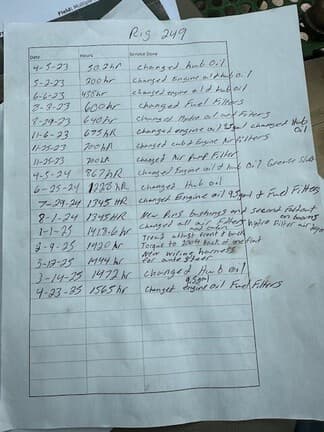 Field: Multiple
Rig 249
Date Hours Service Done
4-5-23 50.2hr Changed Hub Oil
5-2-23 200hr Changed Engine oil & hub oil
6-6-23 438hr Changed engine oil & hub oil
600hr Changed Fuel Filters
640hr Changed Hydro oil and Filters
11-6-23 695hr Changed engine oil changed Hub Oil
11-25-23 700hr Changed cab & Engine Air Filters
11-25-23 700hr Changed Air Pump Filter
4-5-24 867hr Changed Engine oil & hub Oil Grease
6-25-24 1228HR Changed Hub oil
7-29-24 1345HR Changed Engine Oil 9.5gal & Fuel Filters
8-1-24 1345HR New Pins bushings and second foldout on booms
1-1-25 1418.6hr Changed all air Filters and cabin Hydro Filter air
Tread front & back
2-9-25 1420hr Torque to 200ft back and front
3-12-25 1444hr New wiring harness For auto steer
3-14-25 1472hr Changed Hub oil
4-23-25 1565hr Changed engine oil 9.5gal Fuel Filters